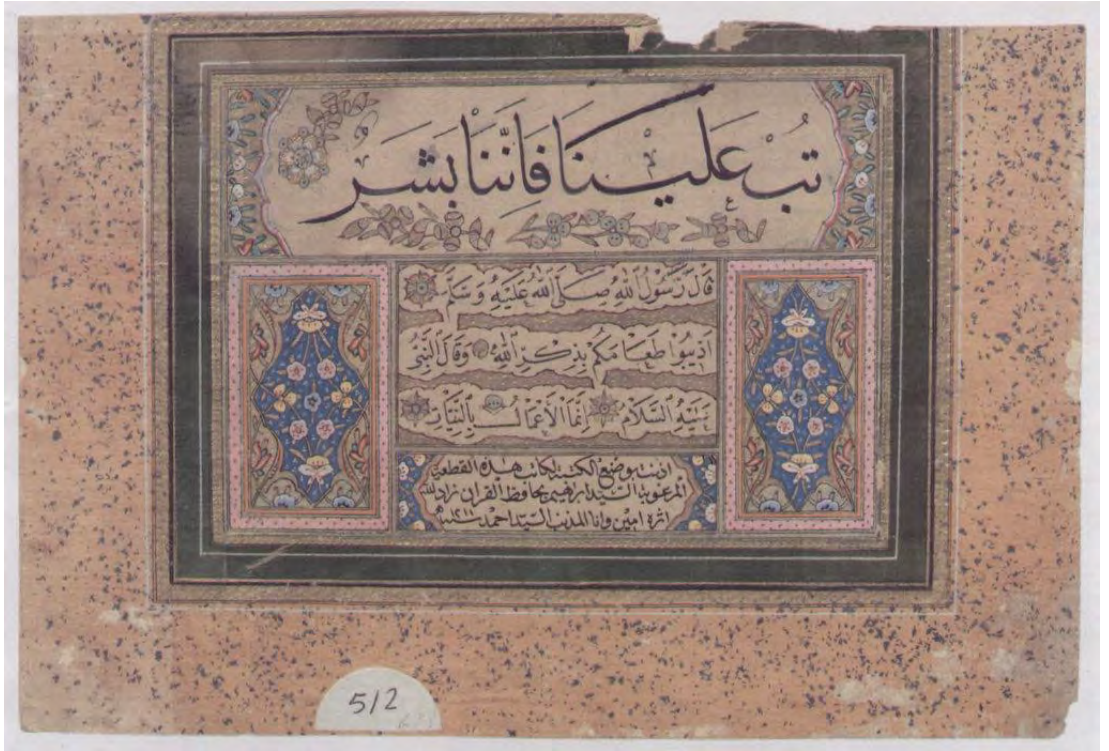 تُبْ عَلَيْنَا فَاِنَّنَا بَشَر
قَالَ رَسُولُ اللّٰهِ صَلَّى اللّٰهُ عَلَيْهِ وَسَلَّمَ
اذيبُوا طَعَامَكُمْ بِذِكْرِ اللّٰهِ وَقَالَ النَّبِىُّ
عَلَيْهِ السَّلَامُ اِنَّمَا الْاَعْمَالُ بِالنِّيَّاتِ
اذنت بوضع الكتبة لكاتب هذه القطعة
المدعو بالسيد ابراهيم بحافظ القرآن زاد الله
اثره امين وانا المذنب السيد احمد سنه ١٢١١
512